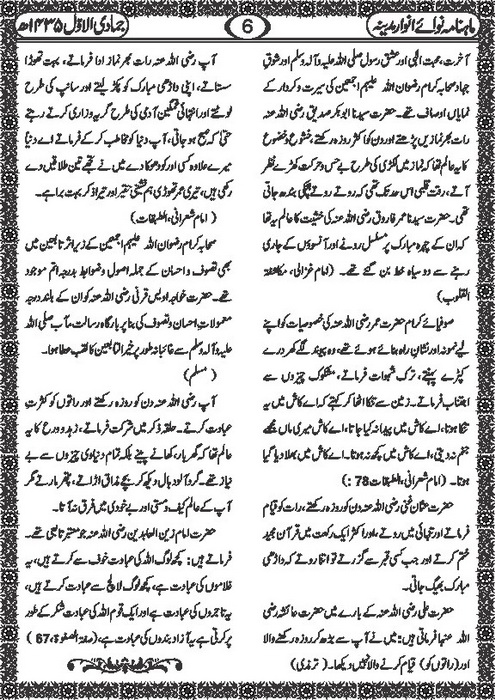 ماہنامہ نوائے انوار مدینہ
6
جمادی الاوّل ۱۴۳۵ھ
آخرت، محبت الٰہی اور عشق رسول صلی اللہ علیہ وآلہ وسلم اور شوقِ
جہاد صحابہ کرام رضوان اللہ علیہم اجمعین کی سیرت و کردار کے
نمایاں اوصاف تھے۔ حضرت سیدنا ابوبکر صدیق رضی اللہ عنہ
رات بھر نمازیں پڑھتے اور دن کو اکثر روزہ رکھتے خشوع و خضوع
کا یہ عالم تھا کہ نماز میں لکڑی کی طرح بے حس و حرکت کھڑے نظر
آتے، رقت قلبی اس حد تک تھی کہ روتے روتے ہچکی بندھ جاتی
تھی۔ حضرت سیدنا عمر فاروق رضی اللہ عنہ کی خشیت کا عالم یہ تھا
کہ ان کے چہرہ مبارک پر مسلسل رونے اور آنسوؤں کے جاری
رہنے سے دو سیاہ خط بن گئے تھے۔ (امام غزالی، مکاشفۃ
القلوب)
صوفیائے کرام حضرت عمر رضی اللہ عنہ کی خصوصیات کو اپنے
لیے نمونہ اور نشان راہ بنائے ہوئے تھے، وہ پیوند لگے کھردرے
کپڑے پہنتے، ترک شبہات فرماتے، مشکوک چیزوں سے
اجتناب فرماتے۔ زمین سے تنکا اٹھا کر کہتے کہ اے کاش میں یہ
تنکا ہوتا، اے کاش میں پیدا نہ کیا جاتا، اے کاش میری ماں مجھے
جنم نہ دیتی، اے کاش میں کچھ نہ ہوتا۔ اے کاش میں بھلا دیا گیا
ہوتا۔ (امام شعرانی، الطبقات 78 :)
حضرت عثمان غنی رضی اللہ عنہ دن کو روزہ رکھتے، رات کو قیام
فرماتے اور تنہائی میں روتے، اور اکثر ایک رکعت میں قرآن مجید
ختم کرتے اور جب کسی قبر سے گزرتے تو اتنا روتے کہ داڑھی
مبارک بھیگ جاتی۔
حضرت علی رضی اللہ عنہ کے بارے میں حضرت عائشہ رضی
اللہ عنہا فرماتی ہیں: میں نے آپ سے بڑھ کر روزہ رکھنے والا
اور (راتوں کو) قیام کرنے والا نہیں دیکھا۔ (ترمذی)
آپ رضی اللہ عنہ رات بھر نماز ادا فرماتے، بہت تھوڑا
سستاتے، اپنی داڑھی مبارک کو پکڑ لیتے اور سانپ کی طرح
لوٹتے اور انتہائی غمگین آدمی کی طرح گریہ و زاری کرتے رہتے
حتیٰ کہ صبح ہو جاتی، آپ دنیا کو مخاطب کر کے فرماتے اے دنیا
میرے علاوہ کسی اور کو دھوکا دے میں نے تجھے تین طلاقیں دے
رکھی ہیں، تیری عمر تھوڑی ہم نشینی حقیر اور تیرا ذکر بہت برا ہے۔
( امام شعرانی، الطبقات)
صحابہ کرام رضوان اللہ علیہم اجمعین کے زیر اثر تابعین میں
بھی تصوف و احسان کے جملہ اصول و ضوابط بدرجہ اتم موجود
تھے۔ حضرت خواجہ اویس قرنی رضی اللہ عنہ کو ان کے بلند درجہ
معمولاتِ احسان و تصوف کی بنا پر بارگاہ رسالت مآب صلی اللہ
علیہ وآلہ وسلم سے غائبانہ طور پر خیر التابعین کا لقب عطا ہوا۔
( مسلم)
آپ رضی اللہ عنہ دن کو روزہ رکھتے اور راتوں کو کثرتِ
عبادت کرتے۔ حلقہ ذکر میں شرکت فرماتے، زہد و ورع کا یہ
عالم تھا کہ گھر بار، کھانے پینے بلکہ تمام دنیاوی چیزوں سے بے
نیاز تھے۔ گرد آلود بال دیکھ کر بچے مذاق اڑاتے، پتھر مارتے مگر
آپ کے عالم کیف و مستی اور بے خودی میں فرق نہ آتا۔
حضرت امام زین العابدین رضی اللہ عنہ جو معتبر تابعی تھے۔
فرماتے ہیں: کچھ لوگ اللہ کی عبادت خوف سے کرتے ہیں، یہ
غلاموں کی عبادت ہے، کچھ لوگ لالچ سے عبادت کرتے ہیں،
یہ تاجروں کی عبادت ہے اور ایک قوم اللہ کی عبادت شکر کے طور
پر کرتی ہے یہ آزاد بندوں کی عبادت ہے، (صفۃ الصفوۃ، 67)